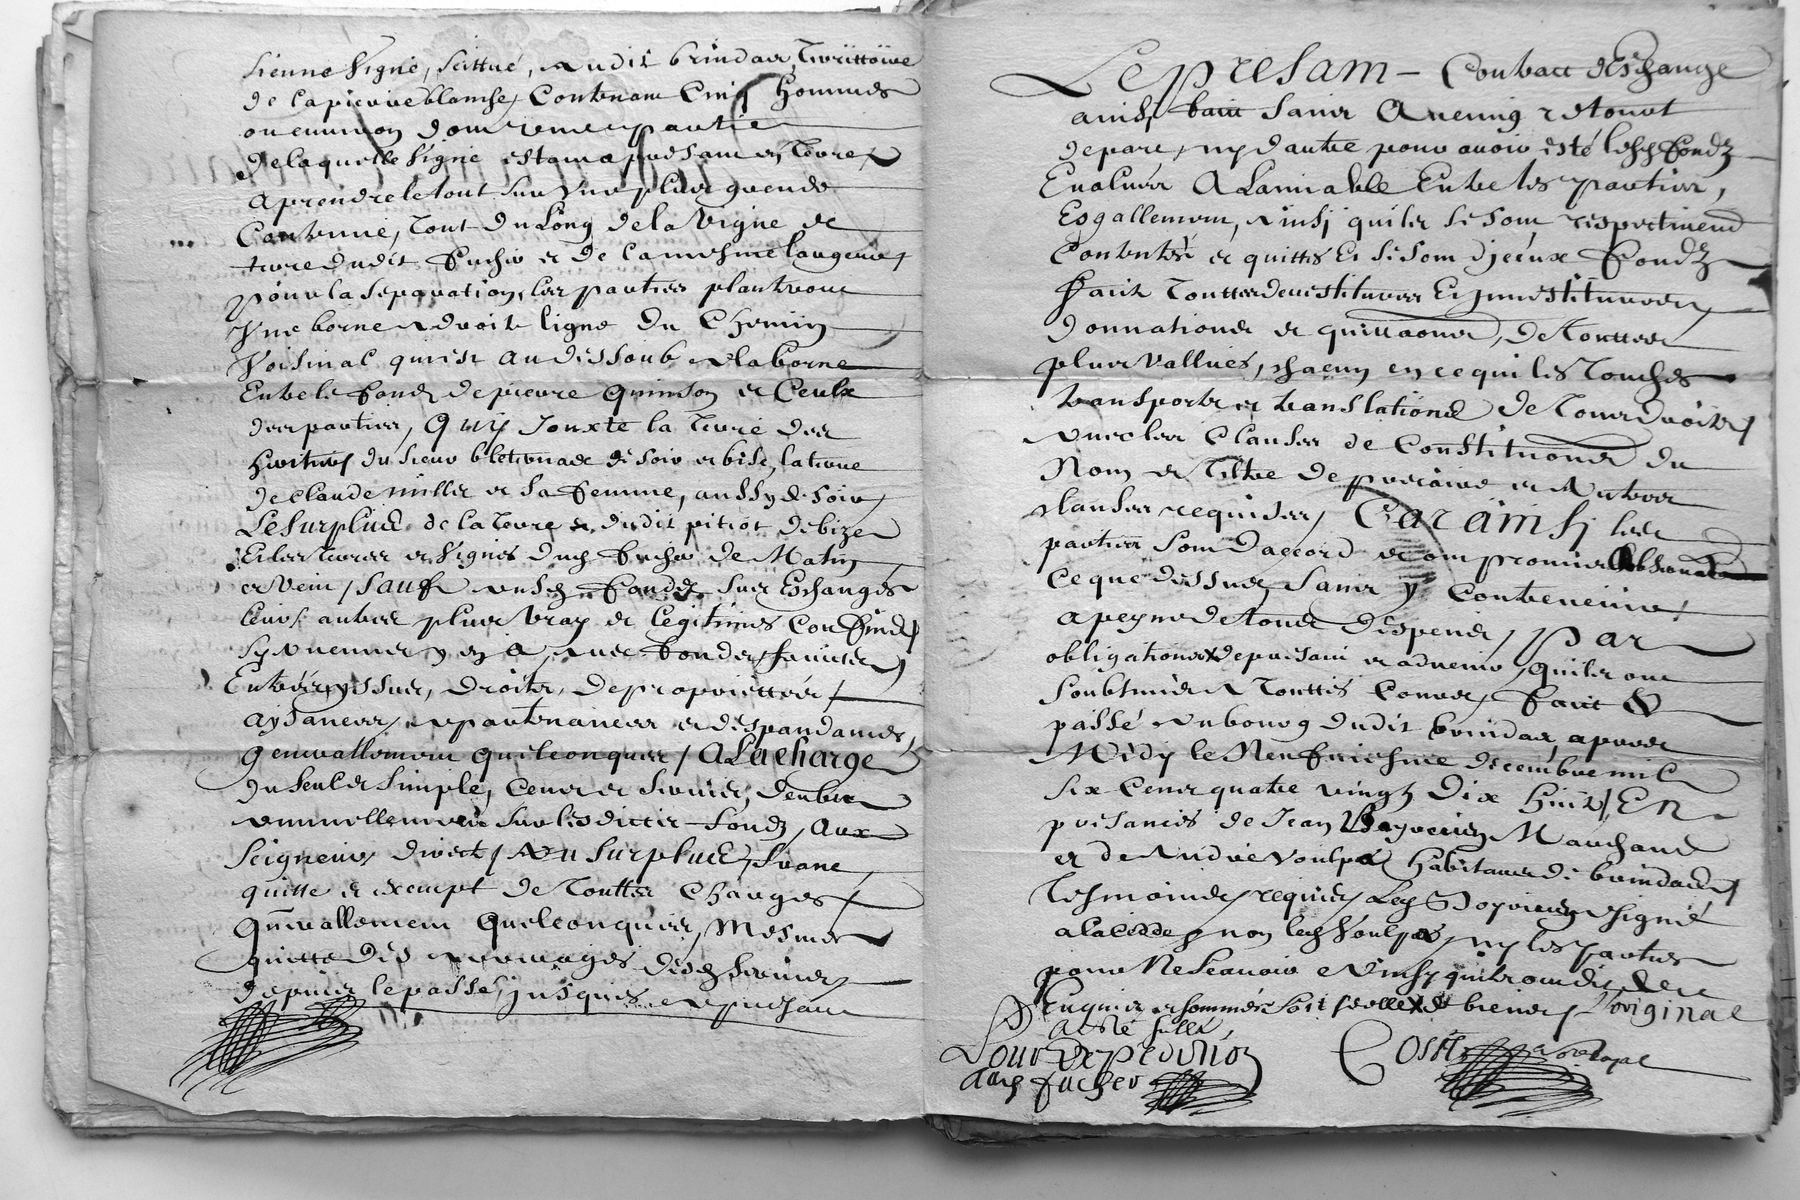 sienne vigne, scittué, audit brindas, Territtoire
de lapierre blanche, Contenant Cinq hommées
ou environ dont reme partie
de laquelle vigne estant apresant en Terre,
a prendre le tout sur une plus grande
Contenue, Tout du Long de la vigne et
terre dudit fucher et de la mesme largeur,
pour la separation, les parties planteront
Une borne adroite ligne du Chemin
Voisinal qui est au dessoub a la borne
Entre le fondz de pierre Guinson et Ceulx
des parties, Quy Jouxte la Terre des
heritiers du sieur bletonnade de soir et bise, la terre
de Claude miller et sa femme, aussy de soir,
Le surplus de la Terre dudit pitiot de bize
Et les terres et vignes dud. fucher de Matin
et Vent, Sauff ausd. fondz sus Eschangés
leurs autres plus vray et legitimes Confins,
sy aucuns y en a, avec fonds, fruictz,
Entrées, yssues, droitz, de proprietteés,
aysances, apartenances et despandances,
generallement quelconques, A La charge
du seul et simple, Cens et servis, deubz
annuellement sur lesdictes fondz, aux
Seigneurs direct, Au surplus, franc
quitte et exempt de Touttes Charges
genrallement quelconques, Mesmes
quitte des arreirages desd. servis
depuis le passé, jusques apresant
Le presant Contract dEschange
ainsy faict sans Aucung retourt
de part, ny dautre pour avoir esté lesd. fondz
Evaluéz A Lamiable Entre les parties,
Esgallement, ainsy quils se sont respectivemt
Contentés et quittés Et se sont djceux fondz
faict Touttes devestitures Et jnvestitures
donnations et quittances, de Touttes
plus vallues, chacun en ce qui les Touches
transportz et translations de Tous droitz,
avec les Clauses de Constitutions du
Nom et Tiltre de precaire et Autres
clauses requises, Car ainsy les
parties sont daccord et ont promis Observer
Ce que dessus, sans y Contrevenir,
a peyne de Tous despens, par
obligations de presant et advenir, quils ont
soubmis a Touttes Cours, faict &
passé au bourg dudit brindas, apres
Midy le Neufviesme decembre mil
six Cens quatre vingtz dix huit, En
presances de Jean Marchand
et de André Voulpe habitans de brindas,
Tesmoins, requis, Led. signé
a la Cedde, non led. Voulpe, ny les parties
pour Ne Scavoir Ainsy quils ont dit de ce
Enquis et sommés soit scellé et , Loriginal
a esté scellé
Pour Expedition
aud. fucher
Cost Nore Royal